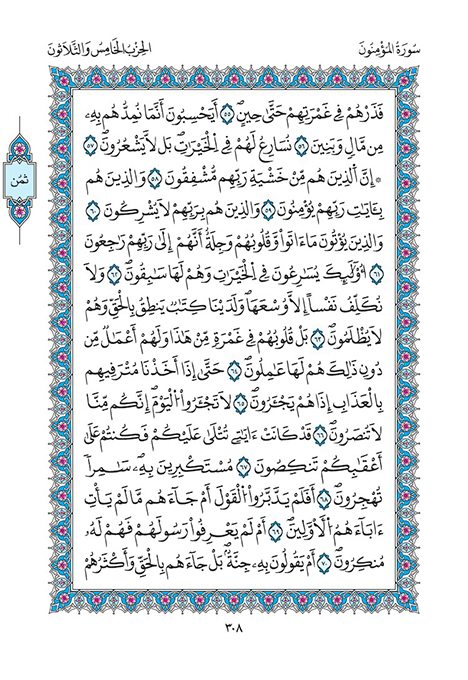 سُورَةُ المُؤْمِنُونَ
الحِزْبُ الخَامِسُ وَالثَّلَاثُونَ
ثُمُن
فَذَرْهُمْ فِے غَمْرَتِهِمْ حَتَّىٰ حِينٍۖ ٥٥ أَيَحْسِبُونَ أَنَّمَا نُمِدُّهُم بِهِۦ
مِن مَّالٖ وَبَنِينَ ٥٦ نُسَارِعُ لَهُمْ فِے اِلْخَيْرَٰتِۖ بَل لَّا يَشْعُرُونَۖ ٥٧
* إِنَّ اَلذِينَ هُم مِّنْ خَشْيَةِ رَبِّهِم مُّشْفِقُونَ ٥٨ وَالذِينَ هُم
بِـَٔايَٰتِ رَبِّهِمْ يُؤْمِنُونَ ٥٩ وَالذِينَ هُم بِرَبِّهِمْ لَا يُشْرِكُونَ ٦٠
وَالذِينَ يُؤْتُونَ مَا ءَاتَواْ وَّقُلُوبُهُمْ وَجِلَةٌ أَنَّهُمْ إِلَىٰ رَبِّهِمْ رَٰجِعُونَ
٦١ أُوْلَٰٓئِكَ يُسَٰرِعُونَ فِے اِلْخَيْرَٰتِ وَهُمْ لَهَا سَٰبِقُونَۖ ٦٢ وَلَا
نُكَلِّفُ نَفْساً اِلَّا وُسْعَهَا وَلَدَيْنَا كِتَٰبٌ يَنطِقُ بِالْحَقِّ وَهُمْ
لَا يُظْلَمُونَۖ ٦٣ بَلْ قُلُوبُهُمْ فِے غَمْرَةٍ مِّنْ هَٰذَا وَلَهُمْ أَعْمَٰلٌ مِّن
دُونِ ذَٰلِكَ هُمْ لَهَا عَٰمِلُونَۖ ٦٤ حَتَّىٰ إِذَا أَخَذْنَا مُتْرَفِيهِم
بِالْعَذَابِ إِذَا هُمْ يَجْـَٔرُونَۖ ٦٥ لَا تَجْـَٔرُواْ اُلْيَوْمَۖ إِنَّكُم مِّنَّا
لَا تُنصَرُونَۖ ٦٦ قَدْ كَانَتَ ـايَٰتِے تُتْلَىٰ عَلَيْكُمْ فَكُنتُمْ عَلَىٰ
أَعْقَٰبِكُمْ تَنكِصُونَ ٦٧ مُسْتَكْبِرِينَ بِهِۦۖ سَٰمِراً
تُهْجِرُونَۖ ٦٨ أَفَلَمْ يَدَّبَّرُواْ اُلْقَوْلَ أَمْ جَآءَهُم مَّا لَمْ يَأْتِ
ءَابَآءَهُمُ اُلَاوَّلِينَۖ ٦٩ أَمْ لَمْ يَعْرِفُواْ رَسُولَهُمْ فَهُمْ لَهُۥ
مُنكِرُونَۖ ٧٠ أَمْ يَقُولُونَ بِهِۦ جِنَّةُۢۖ بَلْ جَآءَهُم بِالْحَقِّ وَأَكْثَرُهُمْ
٣٠٨